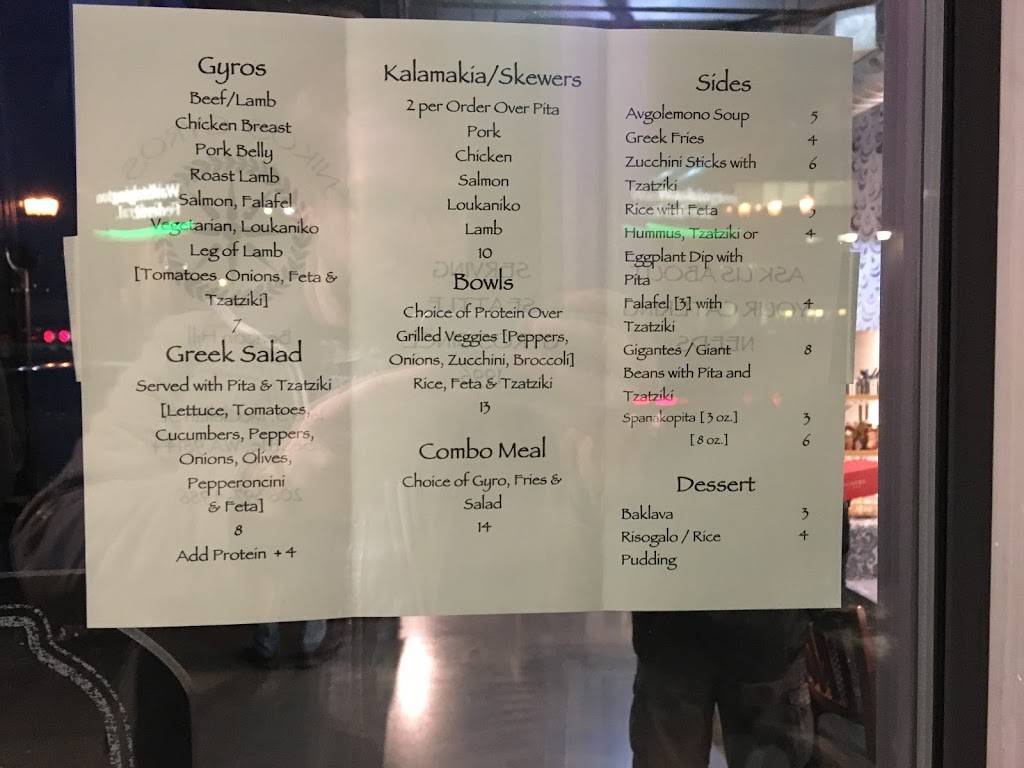 Gyros
Beef/Lamb
Chicken Breast
Pork Belly
Roast Lamb
Salmon, Falafel
Vegetarian, Loukaniko
Leg of Lamb
[Tomatoes, Onions, Feta &
Tzatziki]
7
Greek Salad
Served with Pita & Tzatziki
[Lettuce, Tomatoes,
Cucumbers, Peppers,
Onions, Olives,
Pepperoncini
& Feta]
8
Add Protein + 4
Kalamakia/Skewers
2 per Order Over Pita
Pork
Chicken
Salmon
Loukaniko
Lamb
10
Bowls
Choice of Protein Over
Grilled Veggies [Peppers,
Onions, Zucchini, Broccoli]
Rice, Feta & Tzatziki
13
Combo Meal
Choice of Gyro, Fries &
Salad
14
Sides
Avgolemono Soup 5
Greek Fries 4
Zucchini Sticks with 6
Tzatziki
Rice with Feta
Hummus, Tzatziki or 4
Eggplant Dip with
Pita
Falafel [3] with 4
Tzatziki
Gigantes / Giant 8
Beans with Pita and
Tzatziki
Spanakopita [ 3 oz.] 3
[ 8 oz.] 6
Dessert
Baklava 3
Risogalo / Rice 4
Pudding
SERVING
SEATTLE
ASK US ABOUT
YOUR CATERING
NEEDS